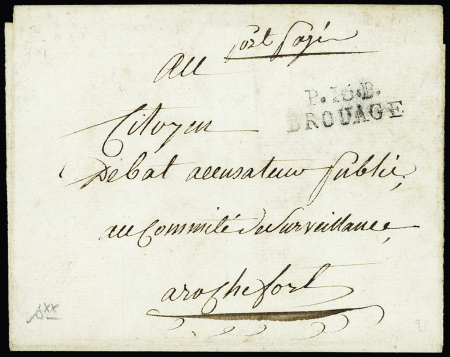 port payé
Au
P.16.P.
BROUAGE
Citoyen
Debat accusateur Public,
au Commité de Surveillance,
a rochefort